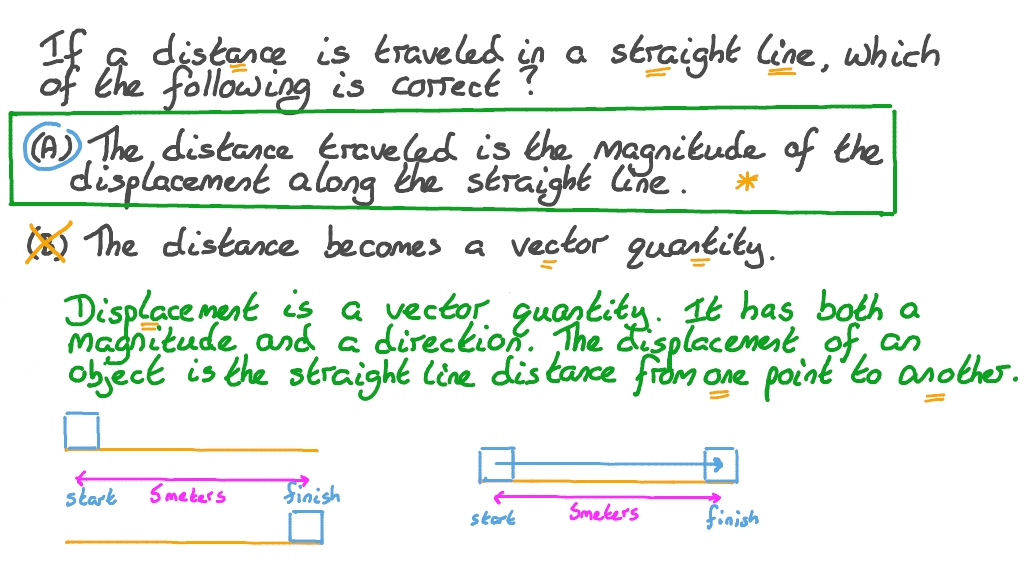 If a distance is traveled in a straight line, which
of the following is correct?
(A) The distance traveled is the magnitude of the
displacement along the straight line. *
(B) The distance becomes a vector quantity.
Displacement is a vector quantity. It has both a
magnitude and a direction. The displacement of an
object is the straight line distance from one point to another.
start 5meters finish
start 5meters finish